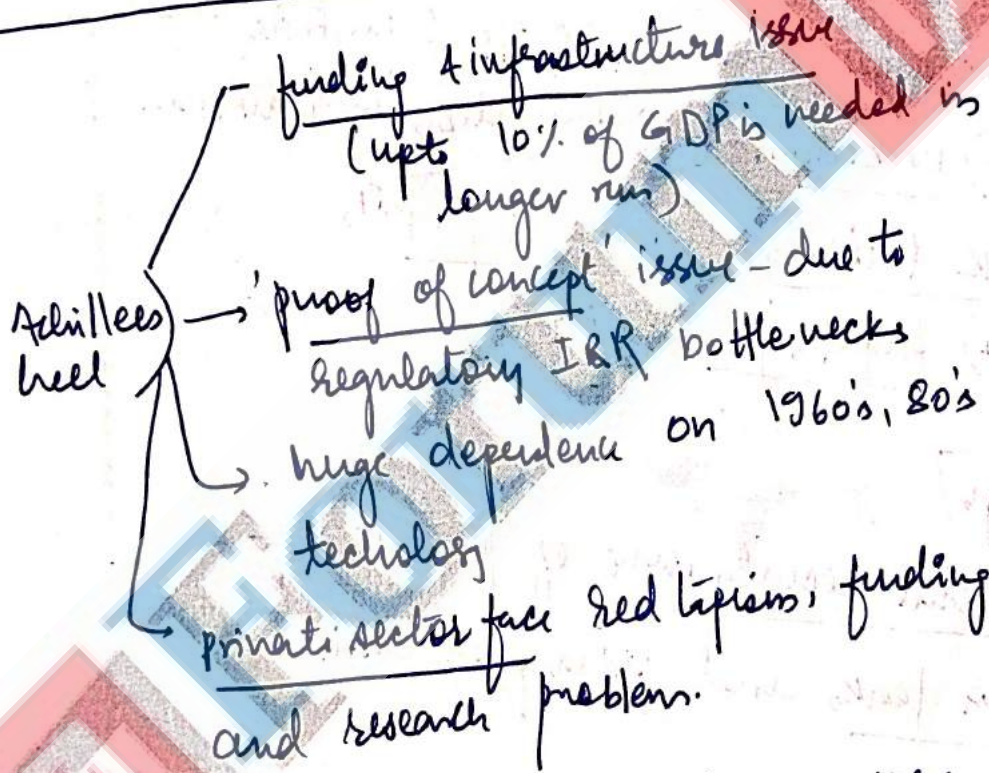 - funding & infrastructure issue
(upto 10% of GDP is needed in
longer run)
Achillees
heel
→ 'proof of concept' issue - due to
regulatory I&R bottlenecks
→ huge dependence on 1960's, 80's
techology
→ private sector face red tapism, funding
and research problem.
ForumIAS